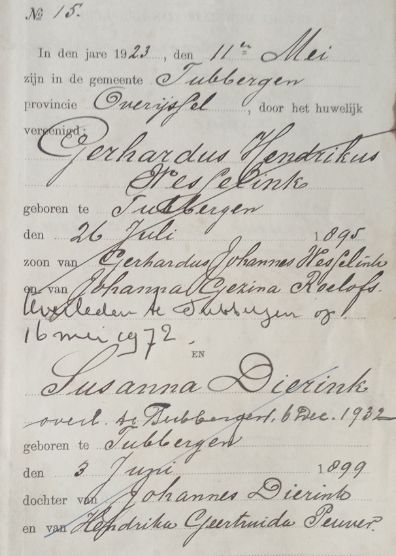 № 15.
In den jare 1923, den 11en Mei
zijn in de gemeente Tubbergen
provincie Overijssel, door het huwelijk
vereenigd:
Gerhardus Hendrikus
Wesselink
geboren te Tubbergen
den 26 Juli 1895
zoon van Gerhardus Johannes Wesselink
en van Johanna Gezina Roelofs.
Overleden te Tubbergen op
16 mei 1972.
EN
Susanna Dierink
overl. te Tubbergen, 6 Dec. 1932
geboren te Tubbergen
den 3 Juni 1899
dochter van Johannes Dierink
en van Hendrika Geertruida Peuver.